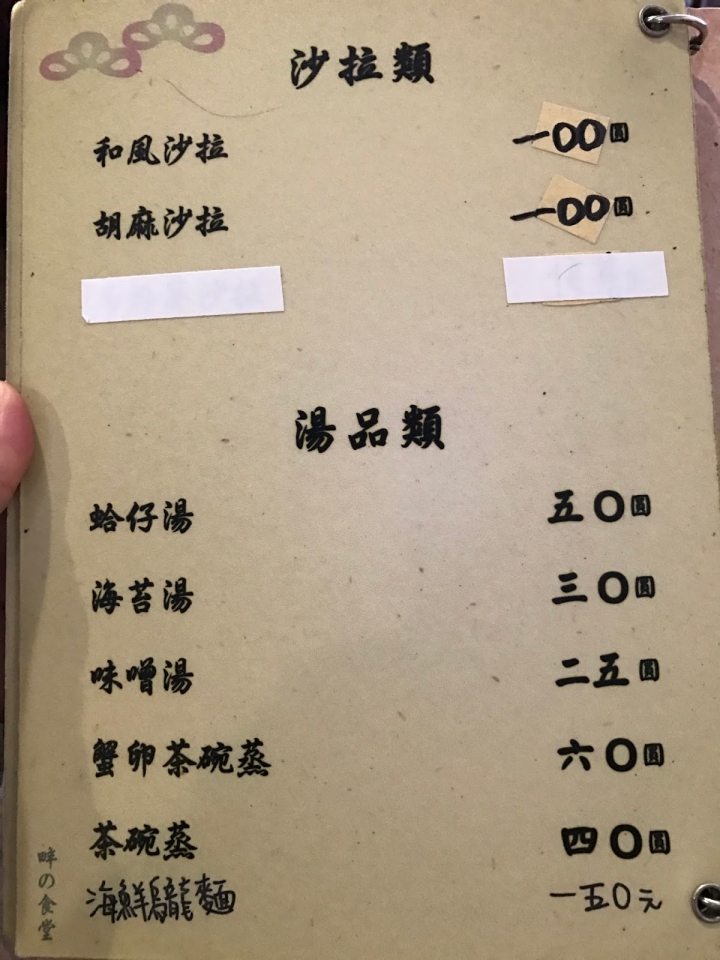 沙拉類
和風沙拉 一00圓
胡麻沙拉 一00圓
湯品類
蛤仔湯 五〇圓
海苔湯 三〇圓
味噌湯 二五圓
蟹卵茶碗蒸 六〇圓
茶碗蒸 四〇圓
海鮮烏龍麵 一五0元
畔の食堂